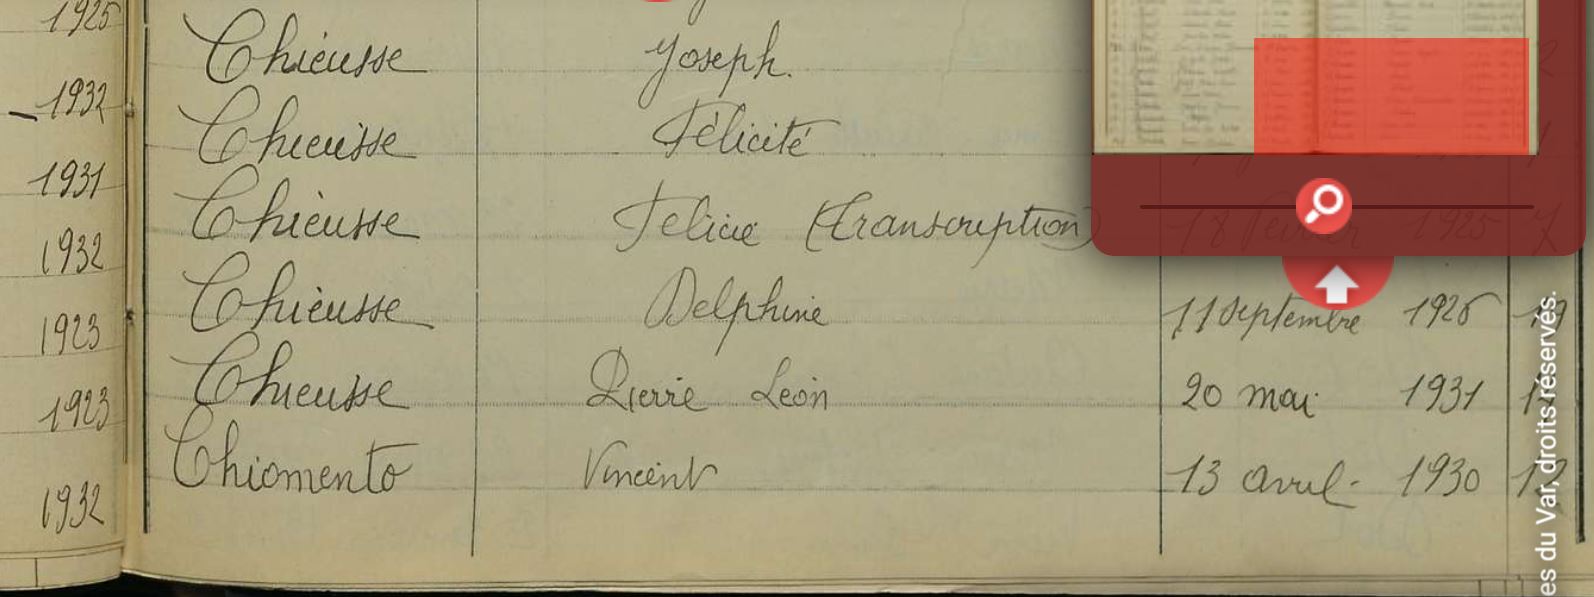 1925
Chieusse Joseph.
1932
Chieusse Félicité
1931
Chieusse Felicie (transcription) 18 Fevrier 1925
1932
Chieusse Delphine 11 Septembre 1926
1923
Chieusse Pierre Léon 20 mai 1931
1923
Chiomento Vincent 13 avril 1930
1932
es du Var, droits réservés.